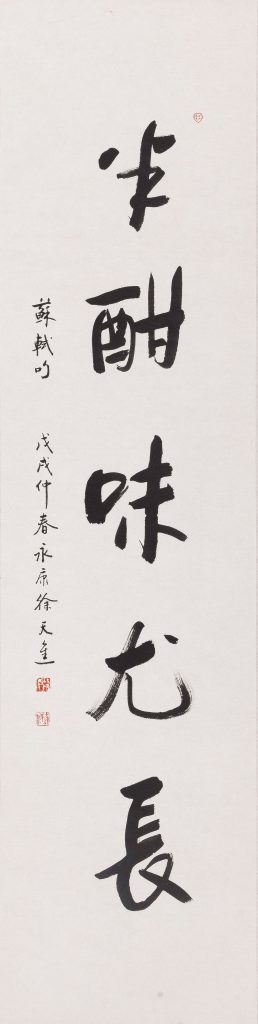 半酣味尤長
蘇軾句
戊戌仲春永康徐天進